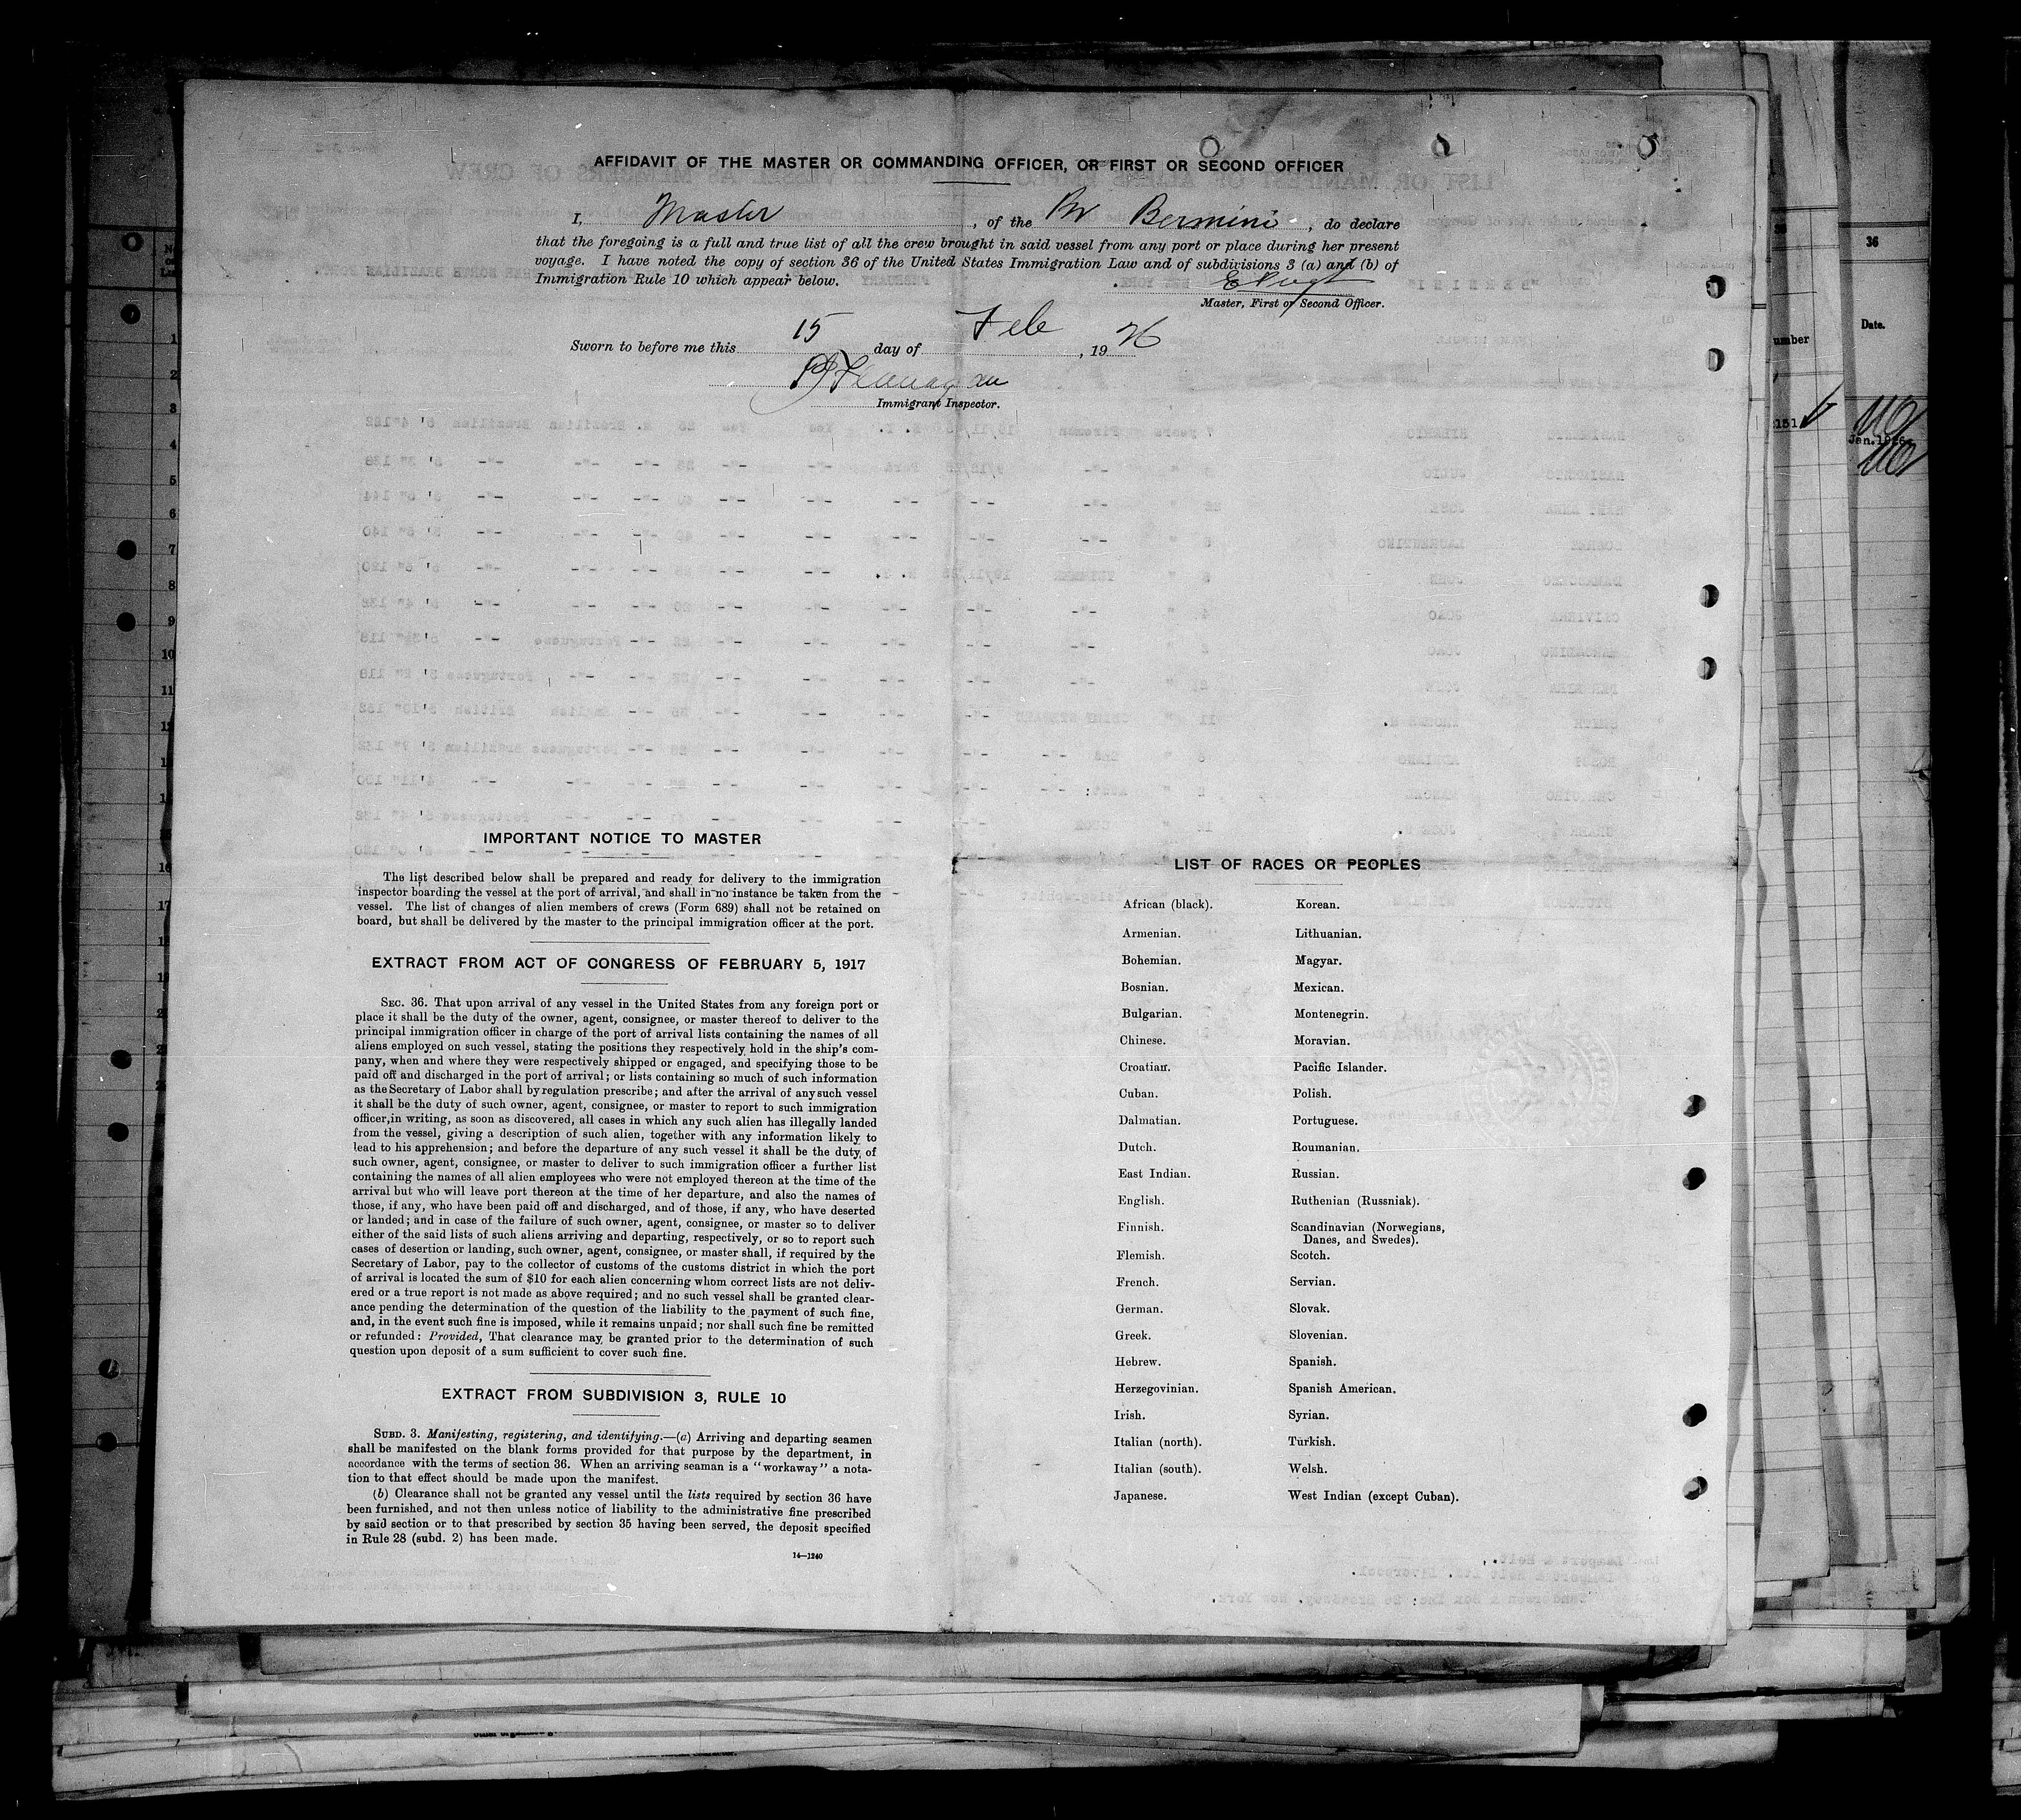 AFFIDAVIT OF THE MASTER OR COMMANDING OFFICER, OR FIRST OR SECOND OFFICER
I, Master, of the Br Bermini, do declare
that the foregoing is a full and true list of all the crew brought in said vessel from any port or place during her present
voyage. I have noted the copy of section 36 of the United States Immigration Law and of subdivisions 3 (a) and (b) of
Immigration Rule 10 which appear below.
Master, First or Second Officer.
Sworn to before me this 15 day of Feb, 1926
Flannagan
Immigrant Inspector.
IMPORTANT NOTICE TO MASTER
The list described below shall be prepared and ready for delivery to the immigration
inspector boarding the vessel at the port of arrival, and shall in no instance be taken from the
vessel. The list of changes of alien members of crews (Form 689) shall not be retained on
board, but shall be delivered by the master to the principal immigration officer at the port.
EXTRACT FROM ACT OF CONGRESS OF FEBRUARY 5, 1917
SEC. 36. That upon arrival of any vessel in the United States from any foreign port or
place it shall be the duty of the owner, agent, consignee, or master thereof to deliver to the
principal immigration officer in charge of the port of arrival lists containing the names of all
aliens employed on such vessel, stating the positions they respectively hold in the ship's com-
pany, when and where they were respectively shipped or engaged, and specifying those to be
paid off and discharged in the port of arrival; or lists containing so much of such information
as the Secretary of Labor shall by regulation prescribe; and after the arrival of any such vessel
it shall be the duty of such owner, agent, consignee, or master to report to such immigration
officer, in writing, as soon as discovered, all cases in which any such alien has illegally landed
from the vessel, giving a description of such alien, together with any information likely to
lead to his apprehension; and before the departure of any such vessel it shall be the duty of
such owner, agent, consignee, or master to deliver to such immigration officer a further list
containing the names of all alien employees who were not employed thereon at the time of the
arrival but who will leave port thereon at the time of her departure, and also the names of
those, if any, who have been paid off and discharged, and of those, if any, who have deserted
or landed; and in case of the failure of such owner, agent, consignee, or master so to deliver
either of the said lists of such aliens arriving and departing, respectively, or so to report such
cases of desertion or landing, such owner, agent, consignee, or master shall, if required by the
Secretary of Labor, pay to the collector of customs of the customs district in which the port
of arrival is located the sum of $10 for each alien concerning whom correct lists are not deliv-
ered or a true report is not made as above required; and no such vessel shall be granted clear-
ance pending the determination of the question of the liability to the payment of such fine,
and, in the event such fine is imposed, while it remains unpaid; nor shall such fine be remitted
or refunded: Provided, That clearance may be granted prior to the determination of such
question upon deposit of a sum sufficient to cover such fine.
EXTRACT FROM SUBDIVISION 3, RULE 10
SUBD. 3. Manifesting, registering, and identifying.—(a) Arriving and departing seamen
shall be manifested on the blank forms provided for that purpose by the department, in
accordance with the terms of section 36. When an arriving seaman is a "workaway" a nota-
tion to that effect should be made upon the manifest.
(b) Clearance shall not be granted any vessel until the lists required by section 36 have
been furnished, and not then unless notice of liability to the administrative fine prescribed
by said section or to that prescribed by section 35 having been served, the deposit specified
in Rule 28 (subd. 2) has been made.
14—1240
LIST OF RACES OR PEOPLES
African (black). Korean.
Armenian. Lithuanian.
Bohemian. Magyar.
Bosnian. Mexican.
Bulgarian. Montenegrin.
Chinese. Moravian.
Croatian. Pacific Islander.
Cuban. Polish.
Dalmatian. Portuguese.
Dutch. Roumanian.
East Indian. Russian.
English. Ruthenian (Russniak).
Finnish. Scandinavian (Norwegians,
Danes, and Swedes).
Flemish. Scotch.
French. Servian.
German. Slovak.
Greek. Slovenian.
Hebrew. Spanish.
Herzegovinian. Spanish American.
Irish. Syrian.
Italian (north). Turkish.
Italian (south). Welsh.
Japanese. West Indian (except Cuban).
36
Date.
Jan. 1926